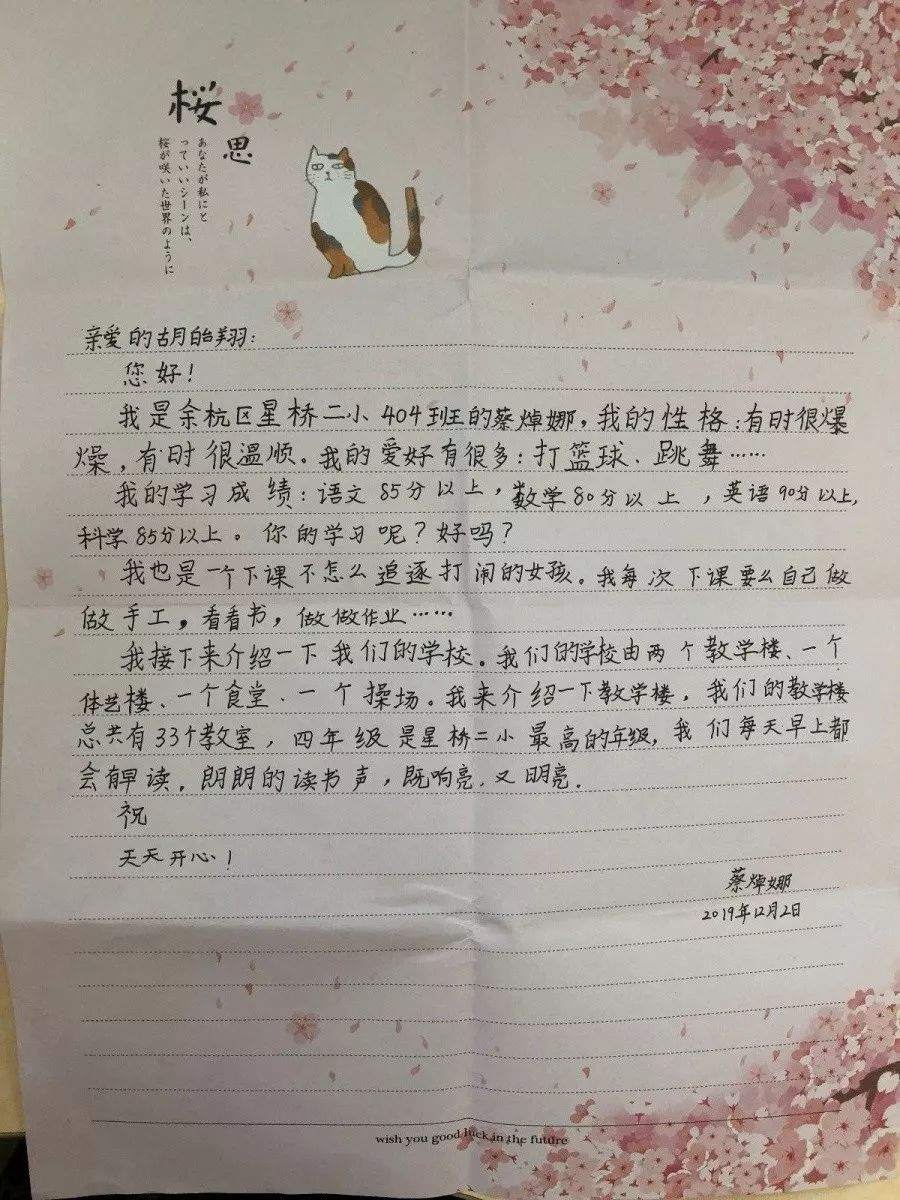 桜
思
あなたが私にと
っていいシーンは、
桜が咲いた世界のように
亲爱的胡皓翔:
您好!
我是余杭区星桥二小404班的蔡焯娜,我的性格:有时很爆
燥,有时很温顺。我的爱好有很多:打篮球、跳舞……
我的学习成绩:语文85分以上,数学80分以上,英语90分以上,
科学85分以上。你的学习呢?好吗?
我也是一个下课不怎么追逐打闹的女孩。我每次下课要么自己做
做手工,看看书,做做作业……
我接下来介绍一下我们的学校。我们的学校由两个教学楼、一个
体艺楼、一个食堂、一个操场。我来介绍一下教学楼,我们的教学楼
总共有33个教室,四年级是星桥二小最高的年级,我们每天早上都
会有早读。朗朗的读书声,既响亮,又明亮.
祝
天天开心!
蔡焯娜
2019年12月2日
wish you good luck in the future